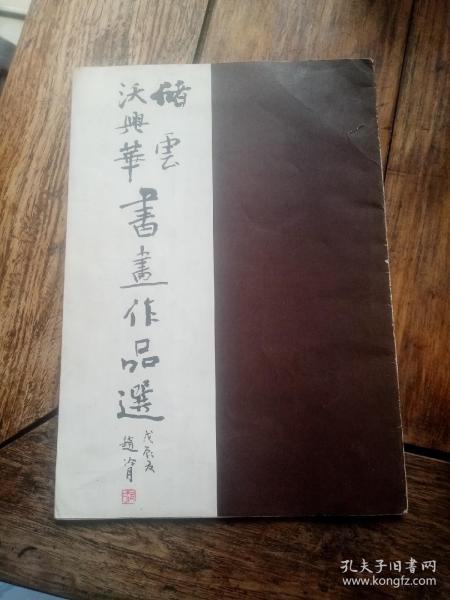 儲雲
沃興華
書畫作品選
戊辰夏
趙冷月
孔夫子旧书网
www.kongfz.com